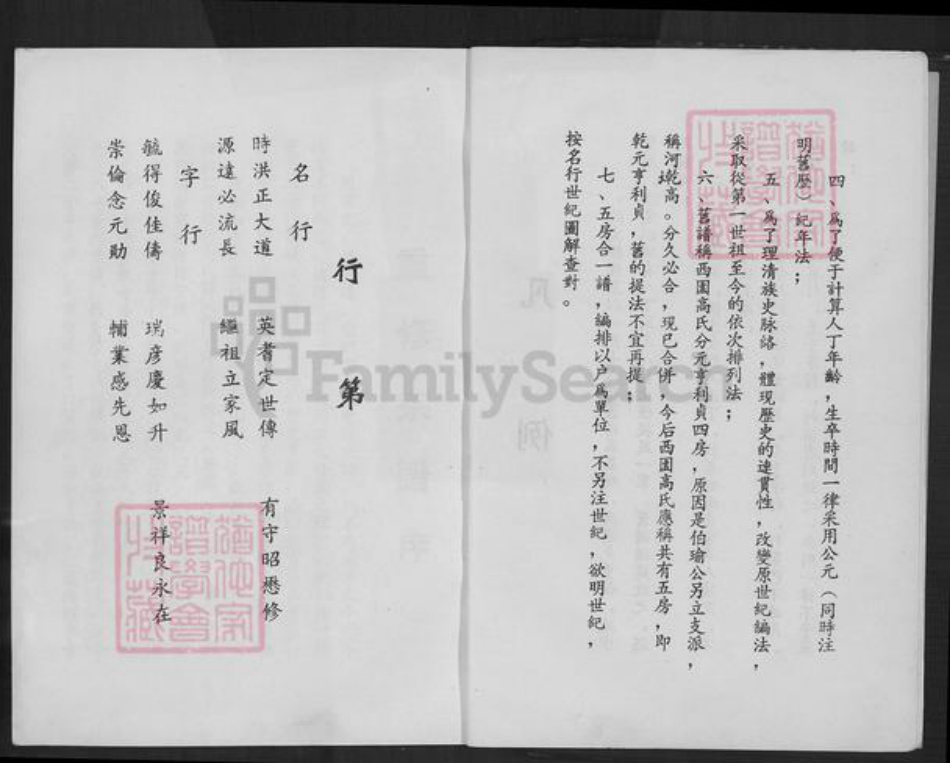 四、爲了便于計算人丁年齡，生卒時間一律采用公元（同時注
明舊歷）紀年法；
五、爲了理清族史脉絡，體現歷史的連貫性，改變原世紀編法，
采取從第一世祖至今的依次排列法；
六、舊譜稱西園高氏分元亨利貞四房，原因是伯瑜公另立支派，
稱河乾高。分久必合，現已合併，今后西園高氏應稱共有五房，即
乾元亨利貞，舊的提法不宜再提；
七、五房合一譜，編排以户爲單位，不另注世紀，欲明世紀，
按名行世紀圖解查對。
行 第
名行
時洪正大道 英耆定世傳 有守昭懋修
源遠必流長 繼祖立家風
字行
毓得俊佳儔 瑞彦慶如升 景祥良永在
崇倫念元勛 輔業感先恩
FamilySearch
凡 例